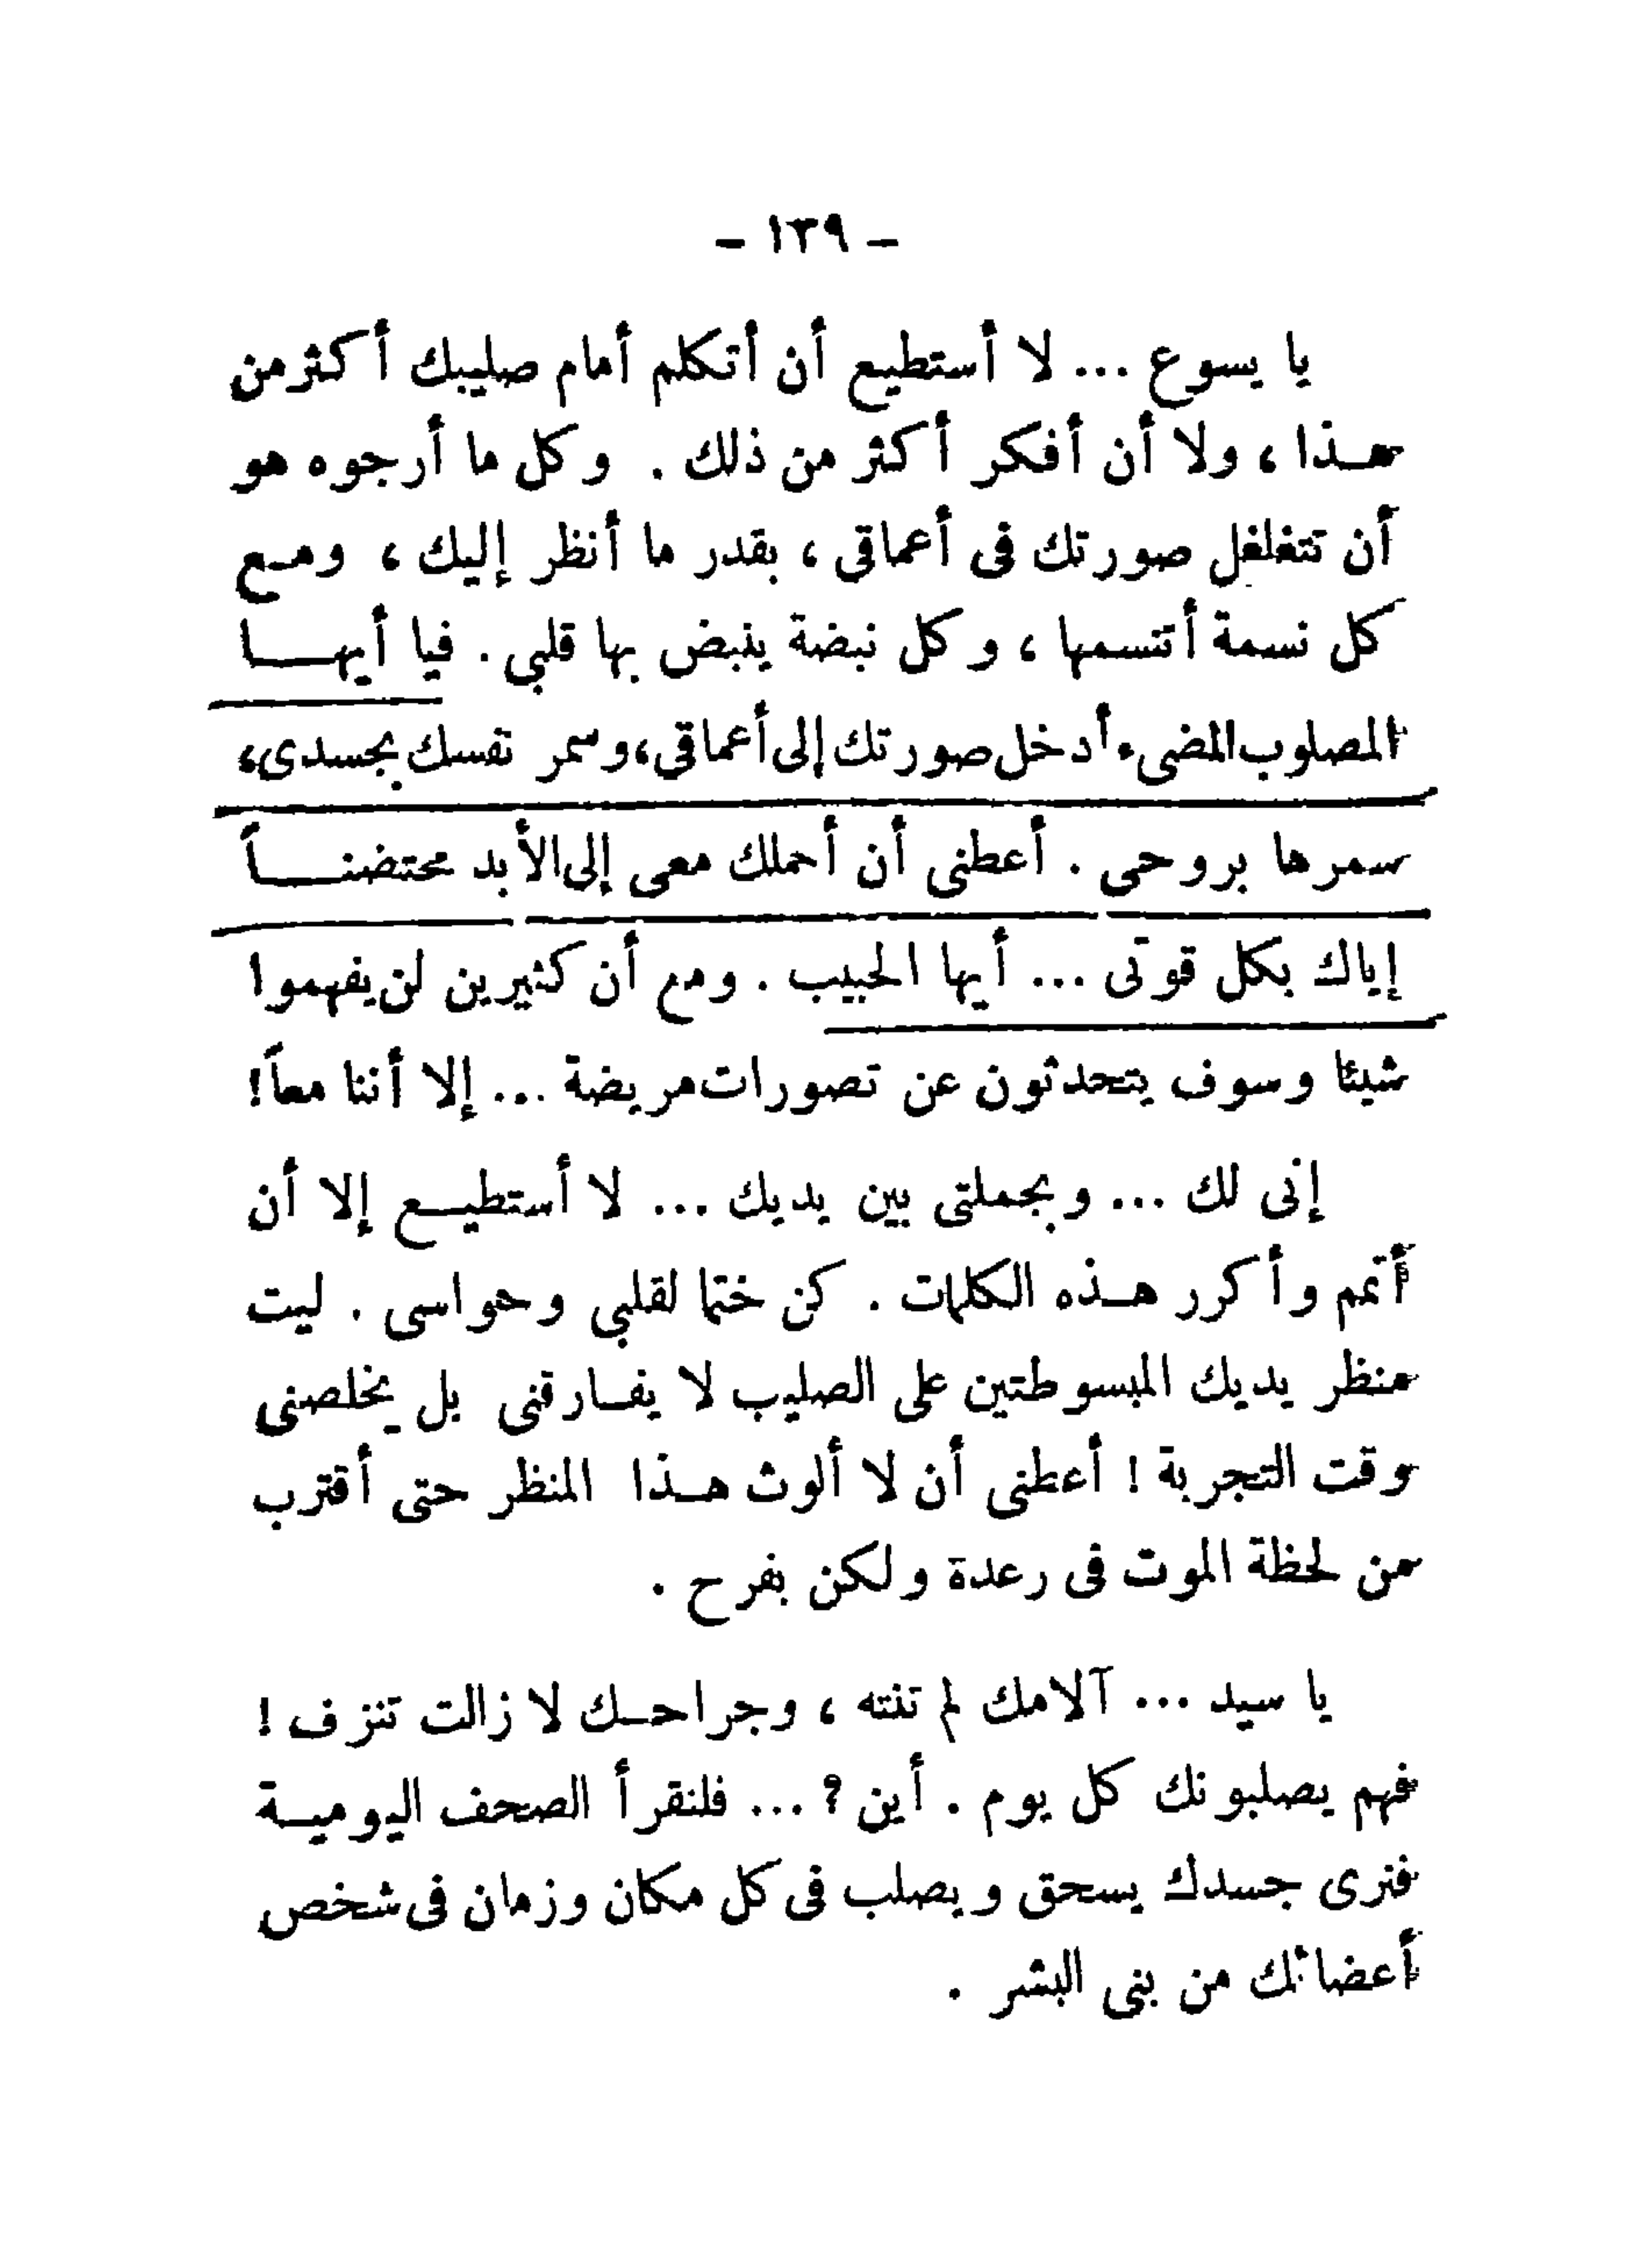 – ١٣٩ –
يا يسوع ... لا أستطيع أن أتكلم أمام صليبك أكثر من
هذا ، ولا أن أفكر أكثر من ذلك . وكل ما أرجوه هو
أن تتغلغل صورتك فى أعماقى ، بقدر ما أنظر إليك ، ومع
كل نسمة أتنسمها ، وكل نبضة ينبض بها قلبى . فيا أيها
المصلوب المضىء أدخل صورتك إلى أعماقى ، وسمر نفسك بجسدى ،
سمرها بروحى . أعطنى أن أحملك معى إلى الأبد محتضناً
إياك بكل قوتى ... أيها الحبيب . ومع أن كثيرين لن يفهموا
شيئا وسوف يتحدثون عن تصورات مريضة ... إلا أننا معاً !
إنى لك ... وبجملتى بين يديك ... لا أستطيع إلا أن
أتمم وأكرر هذه الكلمات . كن ختما لقلبى وحواسى . ليت
منظر يديك المبسوطتين على الصليب لا يفارقنى بل يخلصنى
وقت التجربة ! أعطنى أن لا ألوث هذا المنظر حتى أقترب
من لحظة الموت فى رعدة ولكن بفرح .
يا سيد ... آلامك لم تنته ، وجراحك لا زالت تنزف !
فهم يصلبونك كل يوم . أين ? ... فلنقرأ الصحف اليومية
فنرى جسدك يسحق ويصلب فى كل مكان وزمان فى شخص
أعضائك من بنى البشر .